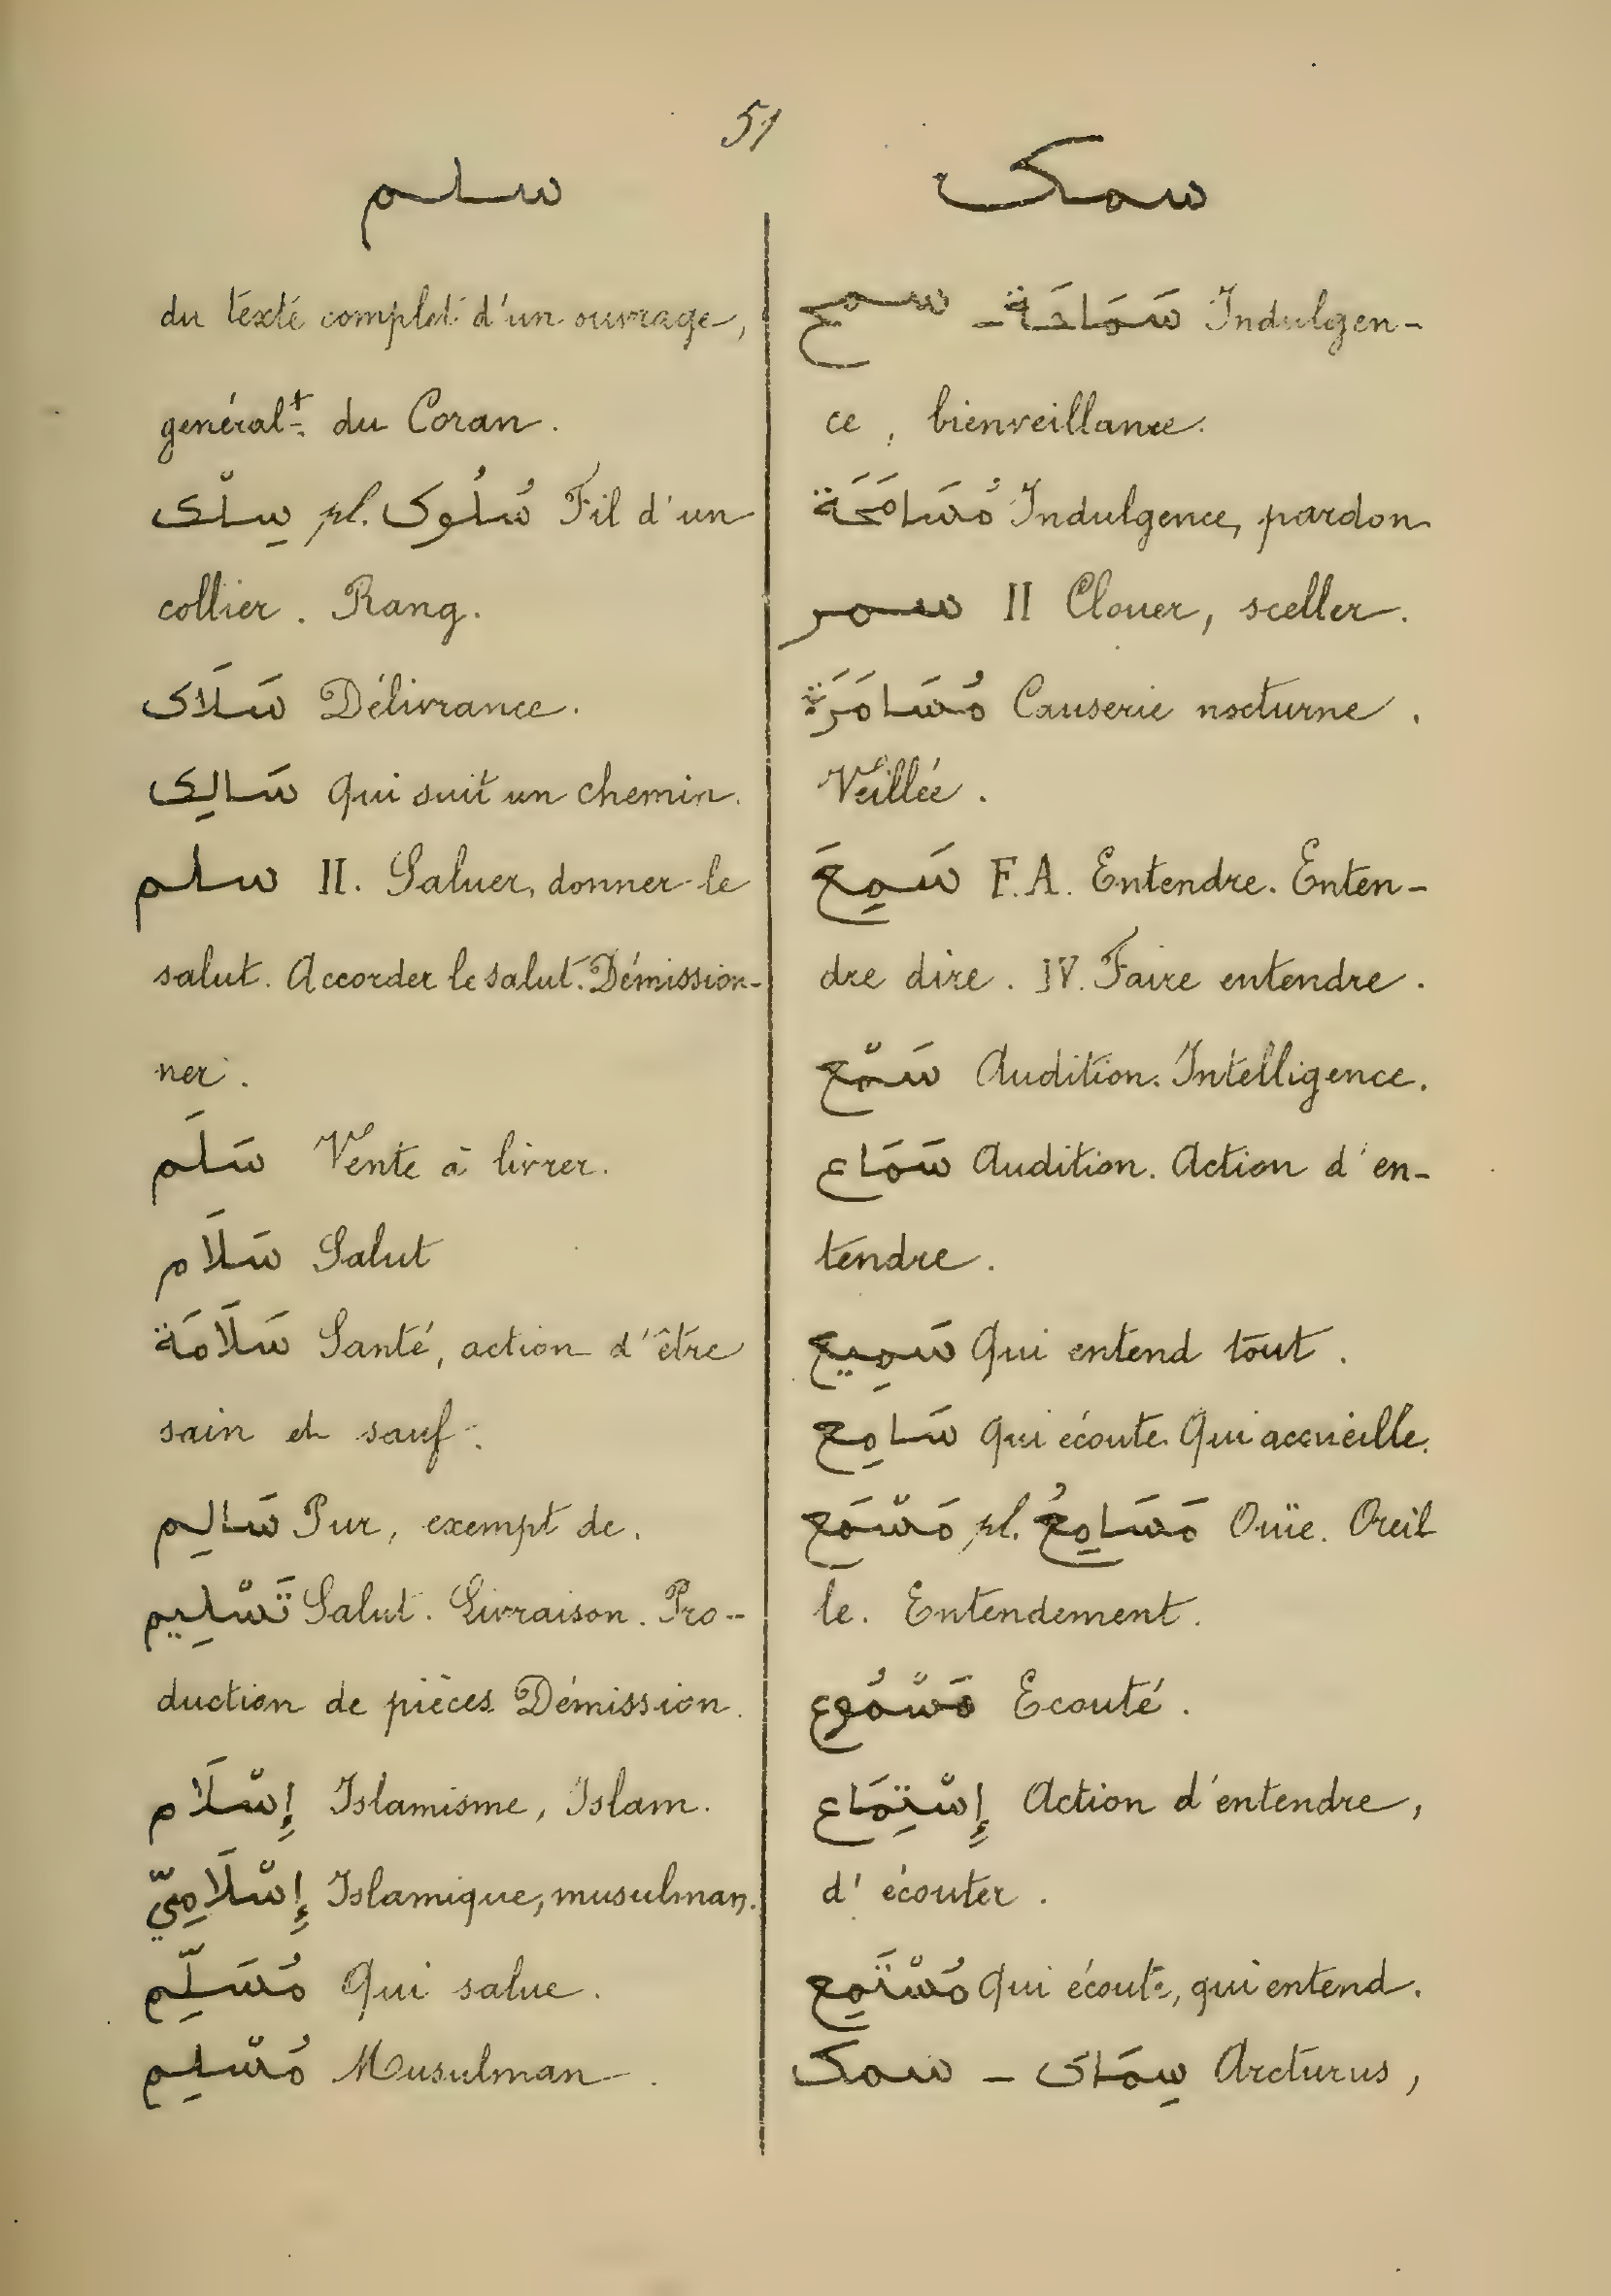 51
سلم
سمك
du texte complet d'un ouvrage,
général.t du Coran.
سِلْك pl. سُلُوك Fil d'un
collier. Rang.
سَلَاك Délivrance.
سَالِك Qui suit un chemin.
سلم II. Saluer, donner le
salut. Accorder le salut. Démission-
ner.
سَلَم Vente à livrer.
سَلَام Salut
سَلَامَة Santé, action d'être
sain et sauf.
سَالِم Pur, exempt de.
تَسْلِيم Salut. Livraison. Pro-
duction de pièces. Démission.
إِسْلَام Islamisme, Islam.
إِسْلَامِيّ Islamique, musulman.
مُسَلِّم Qui salue.
مُسْلِم Musulman.
سمح – سَمَاحَة Indulgen-
ce, bienveillance.
مُسَامَحَة Indulgence, pardon
سمر II Clouer, sceller.
مُسَامَرَة Causerie nocturne.
Veillée.
سَمِعَ F.A. Entendre. Enten-
dre dire. IV. Faire entendre.
سَمْع Audition. Intelligence.
سَمَاع Audition. Action d'en-
tendre.
سَمِيع Qui entend tout.
سَامِع Qui écoute. Qui accueille.
مَسْمَع pl. مَسَامِعُ Ouïe. Oreil
le. Entendement.
مَسْمُوع Ecouté.
إِسْتِمَاع Action d'entendre,
d'écouter.
مُسْتَمِع Qui écoute, qui entend.
سمك – سِمَاك Arcturus,